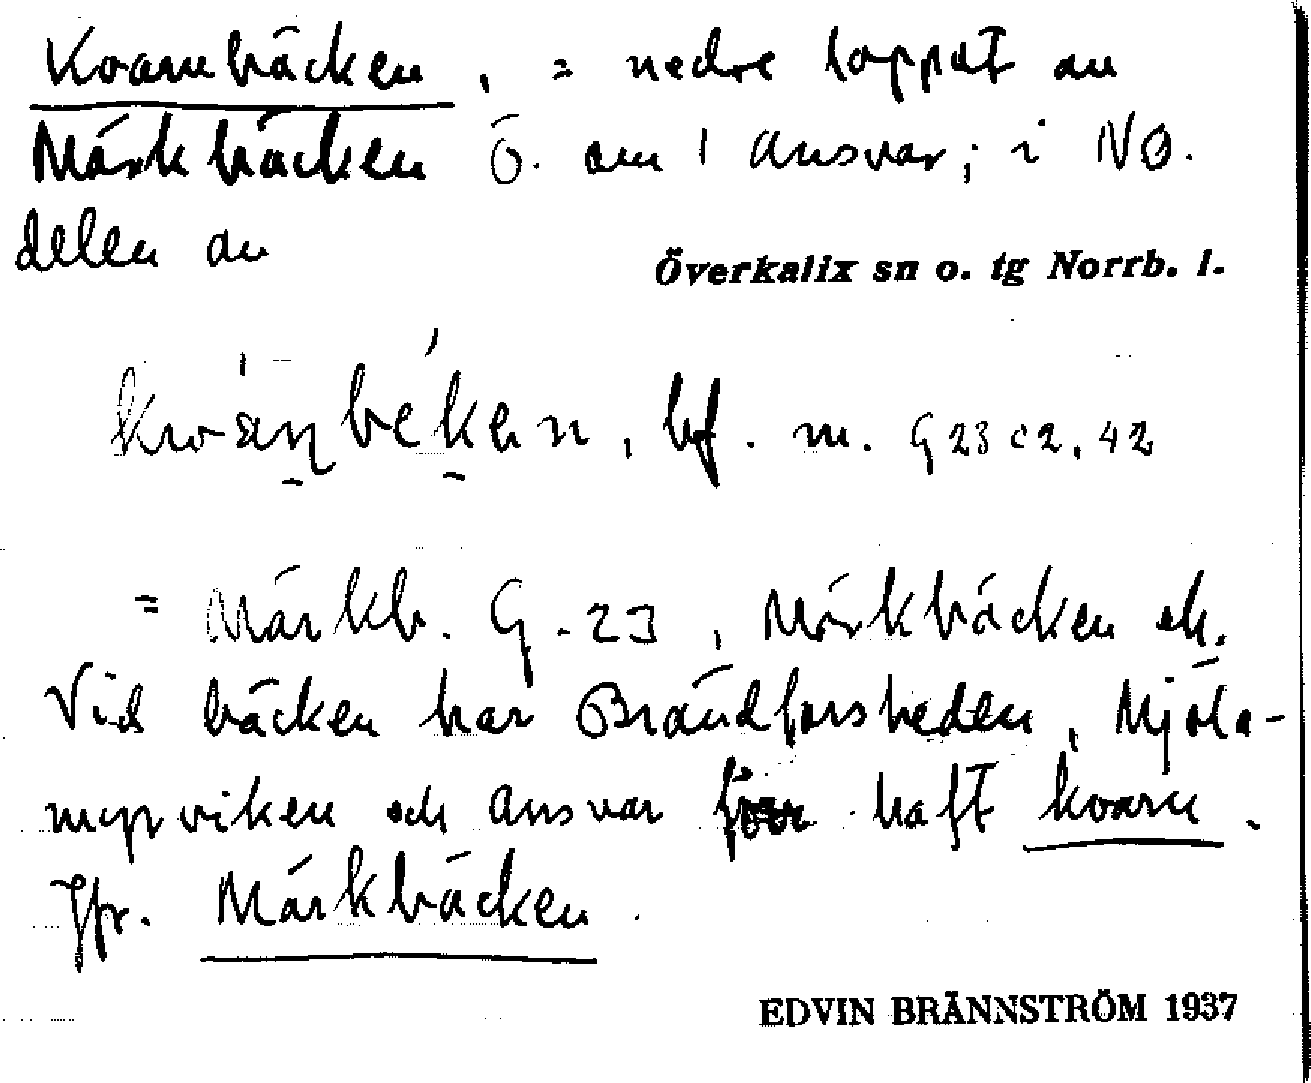 Kvarnbäcken, = nedre loppet av
Märkbäcken Ö. om 1 Ansvar; i NÖ.
delen av
Överkalix sn o. tg Norrb. l.
bf. m. G 23 c 2, 42
= Märkb. G.23, Mörkbäcken ek.
Vid bäcken har Brändforsheden, Mjöla-
myrviken och Ansvar haft kvarn.
Jfr. Märkbäcken.
EDVIN BRÄNNSTRÖM 1937